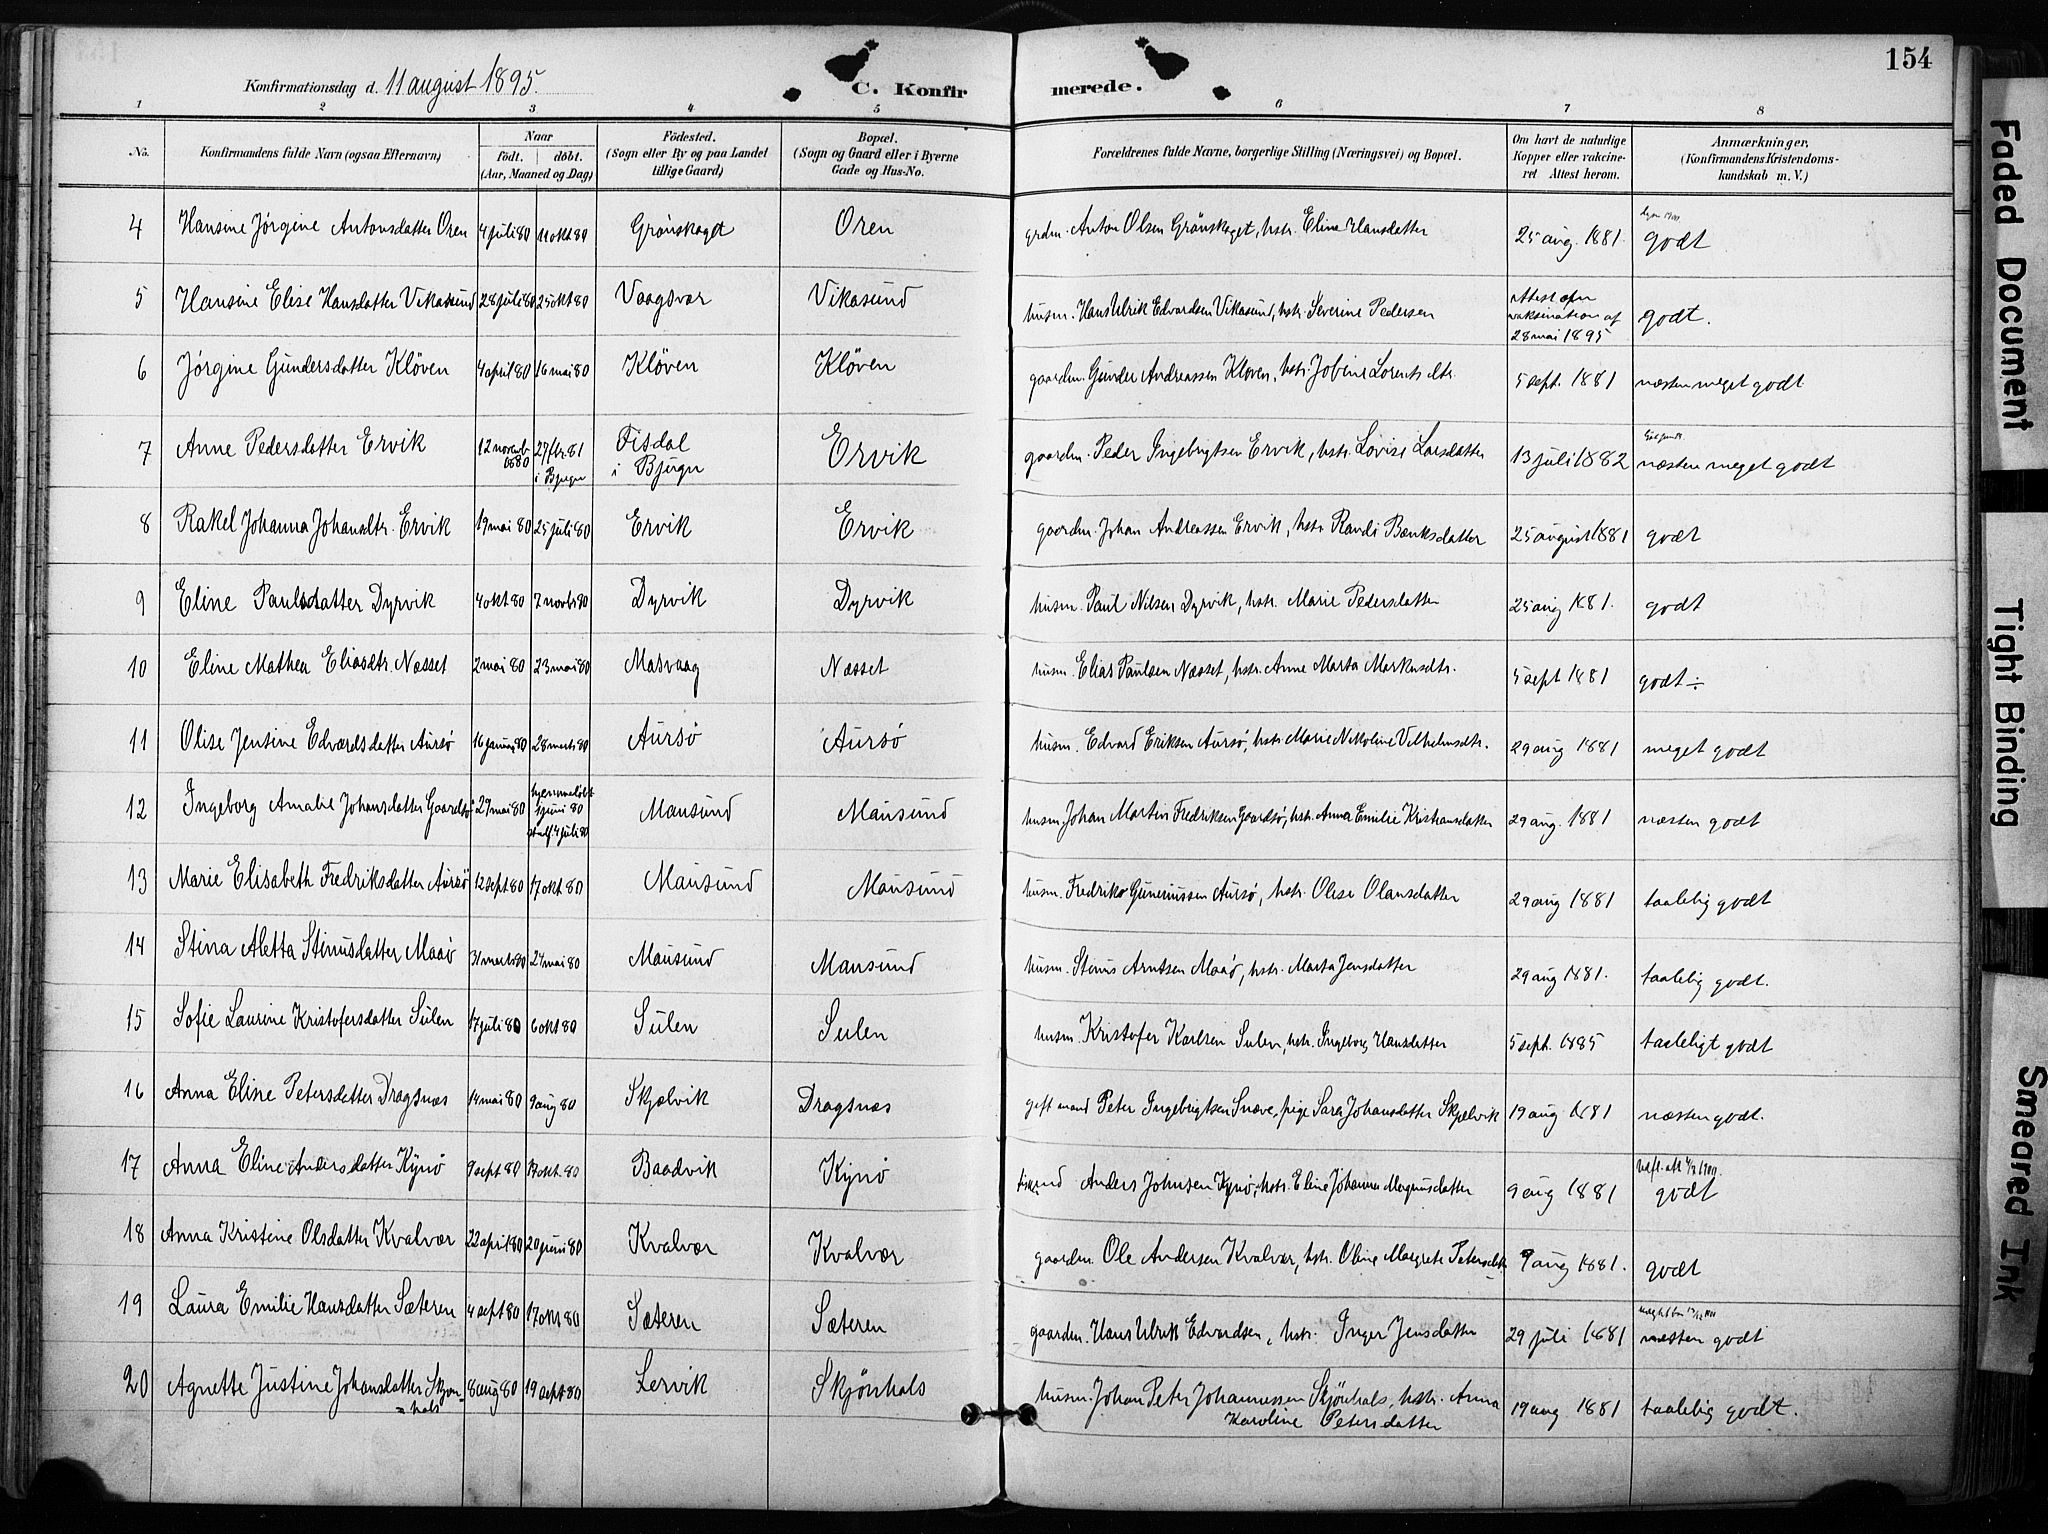 154
Konfirmationsdag d. 11 august 1895.
C. Konfirmerede.
1 2 3 4 5 6 7 8
No.
Konfirmandens fulde Navn (ogsaa Efternavn)
Naar
født. døbt.
(Aar, Maaned og Dag)
Fødested.
(Sogn eller By og paa Landet
tillige Gaard)
Bopæl.
(Sogn og Gaard eller i Byerne
Gade og Hus-No.
Forældrenes fulde Navne, borgerlige Stilling (Næringsvei) og Bopæl.
Om havt de naturlige
Kopper eller vakcine-
ret Attest herom.
Anmærkninger.
(Konfirmandens Kristendoms-
kundskab m. V.)
4 Hansine Jörgine Antonsdatter Oren 4 juli 80 11 okt 80 Grönskaget Oren grdm. Anton Olsen Grönskaget, hstr. Eline Hansdatter 25 aug. 1881. godt
5 Hansine Elise Hansdatter Vikasund 28 juli 80 25 okt 80 Vaagsvær Vikasund husm. Hans Ulrik Edvardsen Vikasund, hstr. Severine Pedersen attest om
vaksination af
28 mai 1895 godt.
6 Jörgine Gundersdatter Klöven 4 april 80 16 mai 80 Klöven Klöven gaardm. Gunder Andreassen Klöven, hstr. Jobine Lorents dtr. 5 sept. 1881 næsten meget godt
7 Anne Pedersdatter Ervik 12 novemb 1880 27 febr 81
i Bjugn Fisdal
i Bjugn Ervik gaardm. Peder Ingebrigtsen Ervik, hstr. Lovise Larsdatter 13 juli 1882 næsten meget godt
8 Rakel Johanna Johansdtr. Ervik 19 mai 80 25 juli 80 Ervik Ervik gaardm. Johan Andreassen Ervik, hstr. Randi Bænksdatter 25 august 1881 godt
9 Eline Paulsdatter Dyrvik 4 okt 80 7 novbr 80 Dyrvik Dyrvik husm. Paul Nilsen Dyrvik, hstr. Marie Pedersdatter 25 aug 1881. godt
10 Eline Mathea Eliasdtr. Næsset 2 mai 80 23 mai 80 Masvaag Næsset husm. Elias Paulsen Næsset, hstr. Anne Marta Markusdtr. 5 sept 1881 godt ÷
11 Olise Jensine Edvardsdatter Aursö 16 januar 80 28 marts 80 Aursö Aursö husm. Edvard Eriksen Aursö, hstr. Marie Nikoline Vilhelmsdtr. 29 aug 1881 meget godt
12 Ingeborg Amalie Johansdatter Gaardsö 29 mai 80 hjemmedöbt
juni 80
stadf. 4 juli 80 Mausund Mausund husm. Johan Martin Fredriksen Gaardsö, hstr. Anna Emilie Kristiansdatter 29 aug. 1881 næsten godt
13 Marie Elisabeth Fredriksdatter Aursö 12 sept 80 17 okt 80 Mausund Mausund husm. Fredrik Guneriussen Aursö, hstr. Olise Olausdatter 29 aug 1881 taalelig godt
14 Stina Aletta Stinusdatter Maaö 31 marts 80 24 mai 80 Mausund Mausund husm. Stinus Arntsen Maaö, hstr. Marta Jensdatter 29 aug 1881. taalelig godt.
15 Sofie Laurine Kristofersdatter Sulen 17 juli 80 6 okt 80 Sulen Sulen husm. Kristofer Karlsen Sulen, hstr. Ingeborg Hansdatter 5 sept. 1885 taaleligt godt
16 Anna Eline Petersdatter Dragsnæs 14 mai 80 9 aug 80 Skjælvik Dragsnæs gift mand Peter Ingebrigtsen Snæve, pige Sara Johansdatter Skjælvik 19 aug 1881 næsten godt.
17 Anna Eline Andersdatter Kynö 9 sept 80 17 okt. 80 Baadvik Kynö Anders Johnsen Kynö, hstr. Eline Johanna Magnusdatter 9 aug 1881 godt
18 Anna Kristine Olsdatter Kvalvær 22 april 80 20 juni 80 Kvalvær Kvalvær gaardm. Ole Andersen Kvalvær, hstr. Oline Margrete Petersdtr 9 aug 1881. godt
19 Laura Emilie Hansdatter Sæteren 4 sept 80 17 okt 80 Sæteren Sæteren gaardm. Hans Ulrik Edvardsen, hstr. Inger Jensdatter 29 juli 1881 næsten godt
20 Agnette Justine Johansdatter Skjön-
=hals 8 aug 80 19 sept 80 Lervik Skjönhals husm. Johan Peter Johannessen Skjönhals, hstr. Anna
Karoline Petersdatter 19 aug 1881 taalelig godt.
Faded Document
Tight Binding
Smeared Ink